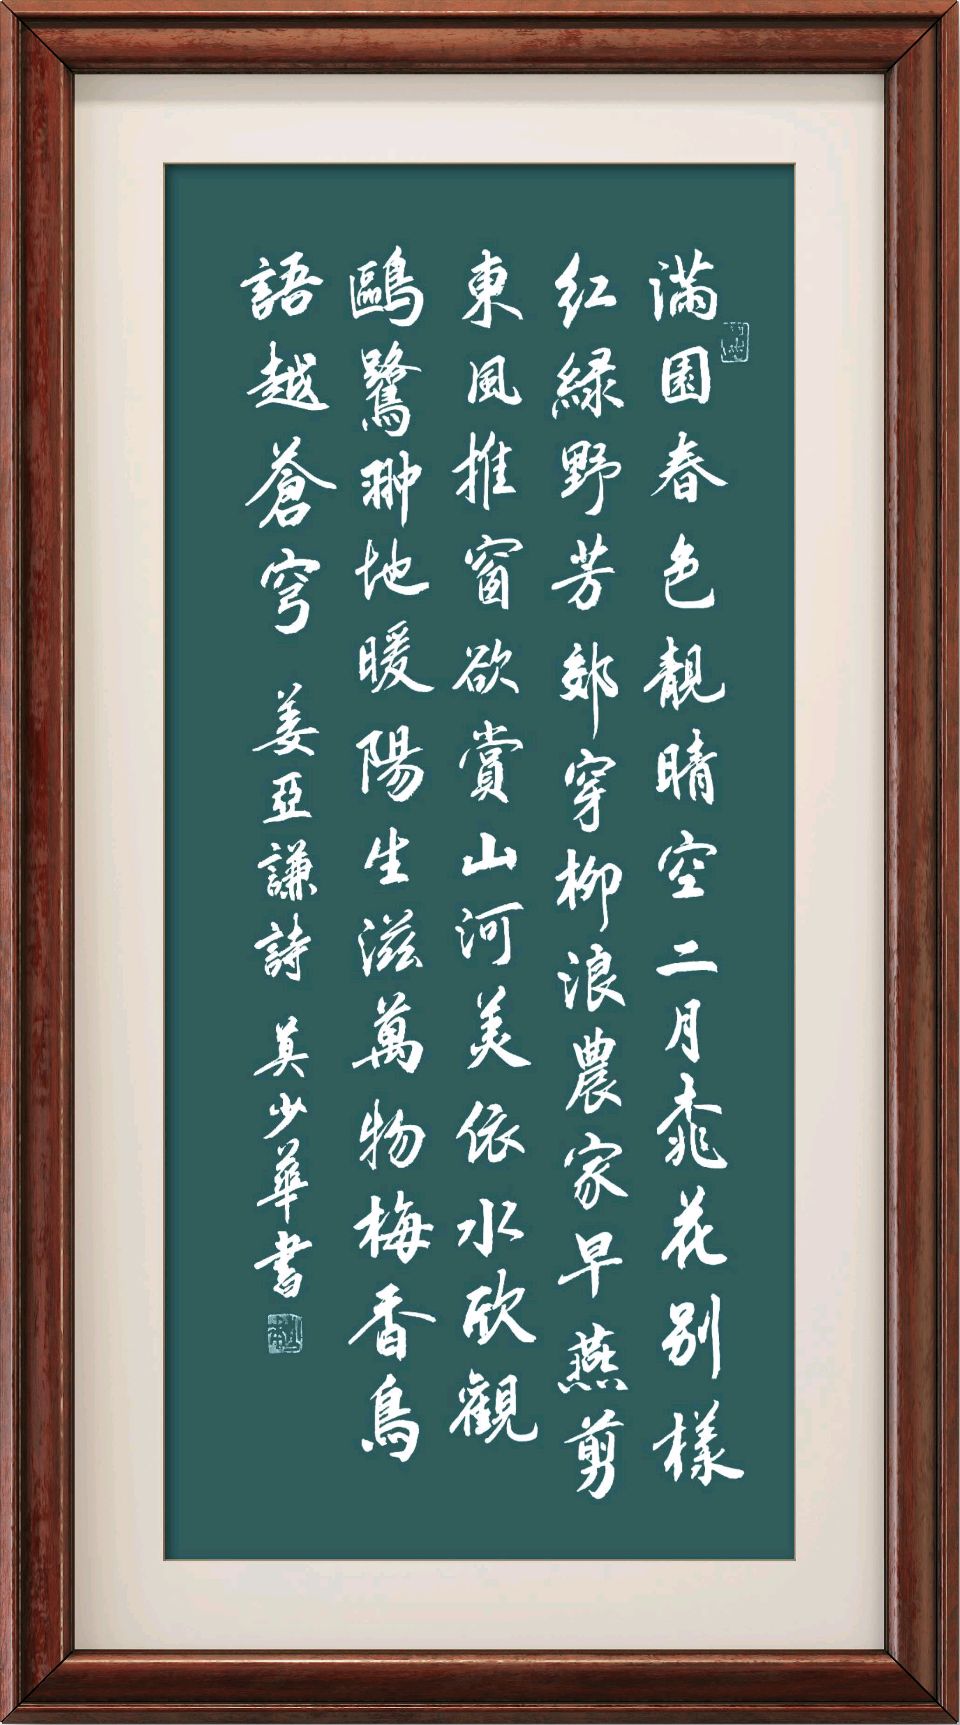 滿園春色靚晴空二月桃花别樣
红緑野芳郊穿柳浪農家早燕剪
東風推窗欲賞山河美依水欣觀
鷗鷺翀地暖陽生滋萬物梅香鳥
語越蒼穹 姜亞謙詩 莫少華書